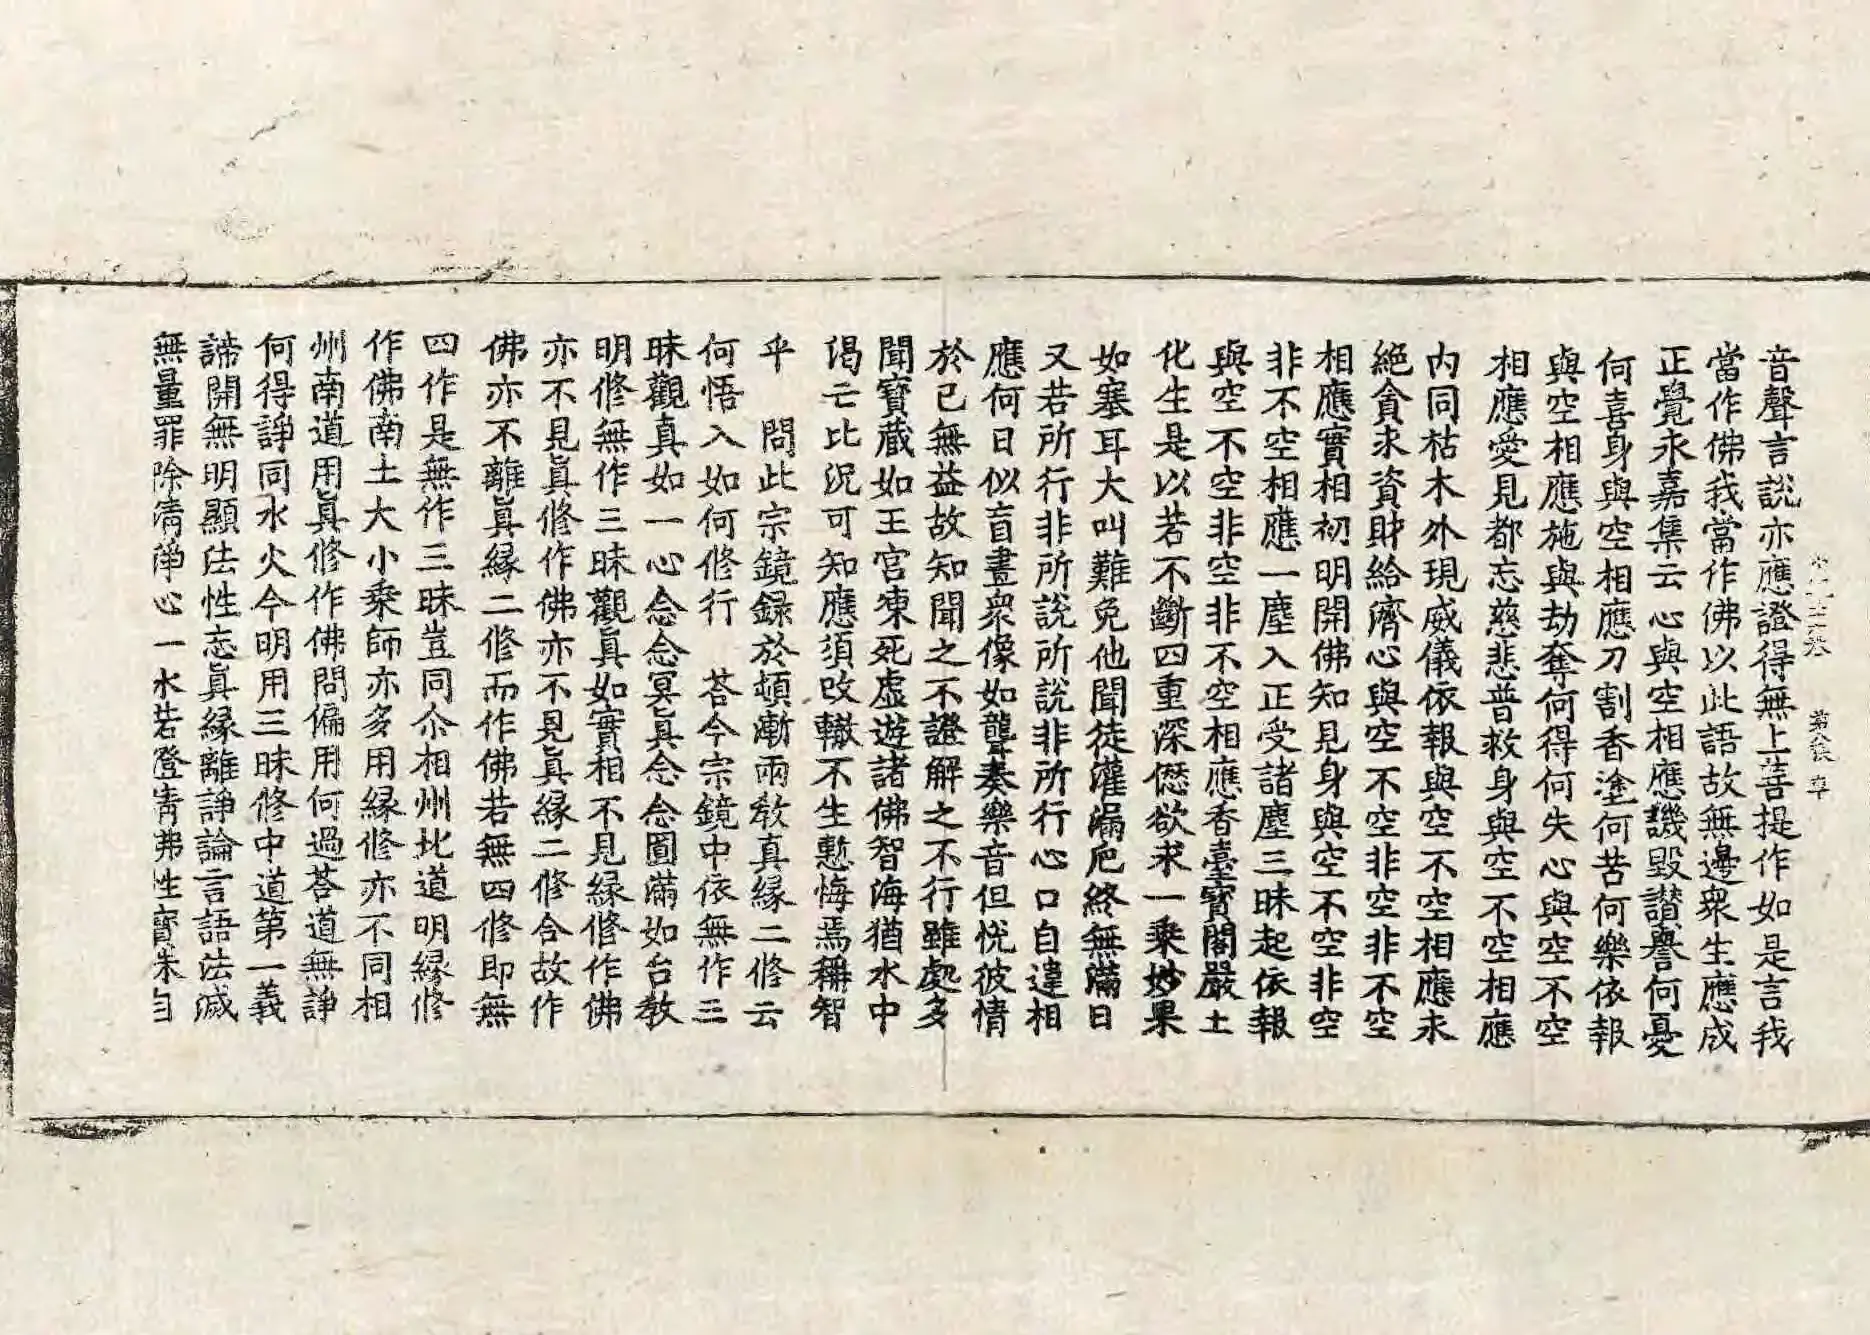 音聲言說亦應證得無上菩提作如是言我
當作佛我當作佛以此語故無邊衆生應成
正覺永嘉集云心與空相應譏毀讃譽何憂
何喜身與空相應刀割香塗何苦何樂依報
與空相應施與劫奪何得何失心與空不空
相應愛見都忘慈悲普救身與空不空相應
內同枯木外現威儀依報與空不空相應永
絕貪求資財給濟心與空不空非空非不空
相應實相初明開佛知見身與空不空非空
非不空相應一塵入正受諸塵三昧起依報
與空不空非空非不空相應香臺寶閣嚴土
化生是以若不斷四重深僁欲求一乗妙果
如塞耳大叫難免他聞徒灌漏巵終無滿日
又若所行非所說所說非所行心口自違相
應何日似盲畫衆像如聾奏樂音但恱彼情
於己無益故知聞之不證解之不行雖處多
聞寶藏如王宮凍死虛遊諸佛智海猶水中
渴亡比況可知應須改轍不生慙悔焉稱智
乎　問此宗鏡錄於頓漸兩敎真緣二修云
何悟入如何修行　荅今宗鏡中依無作三
昧觀真如一心念念冥真念念圓滿如台敎
明修無作三昧觀眞如實相不見緣修作佛
亦不見眞修作佛亦不見眞緣二修合故作
佛亦不離眞緣二修而作佛若無四修即無
四作是無作三昧豈同尒相州北道明緣修
作佛南土大小乗師亦多用緣修亦不同相
州南道用眞修作佛問偏用何過荅道無諍
何得諍同水火今明用三昧修中道第一義
諦開無明顯法性忘眞緣離諍論言語法滅
無量罪除清淨心一水若澄清佛性寶朱自